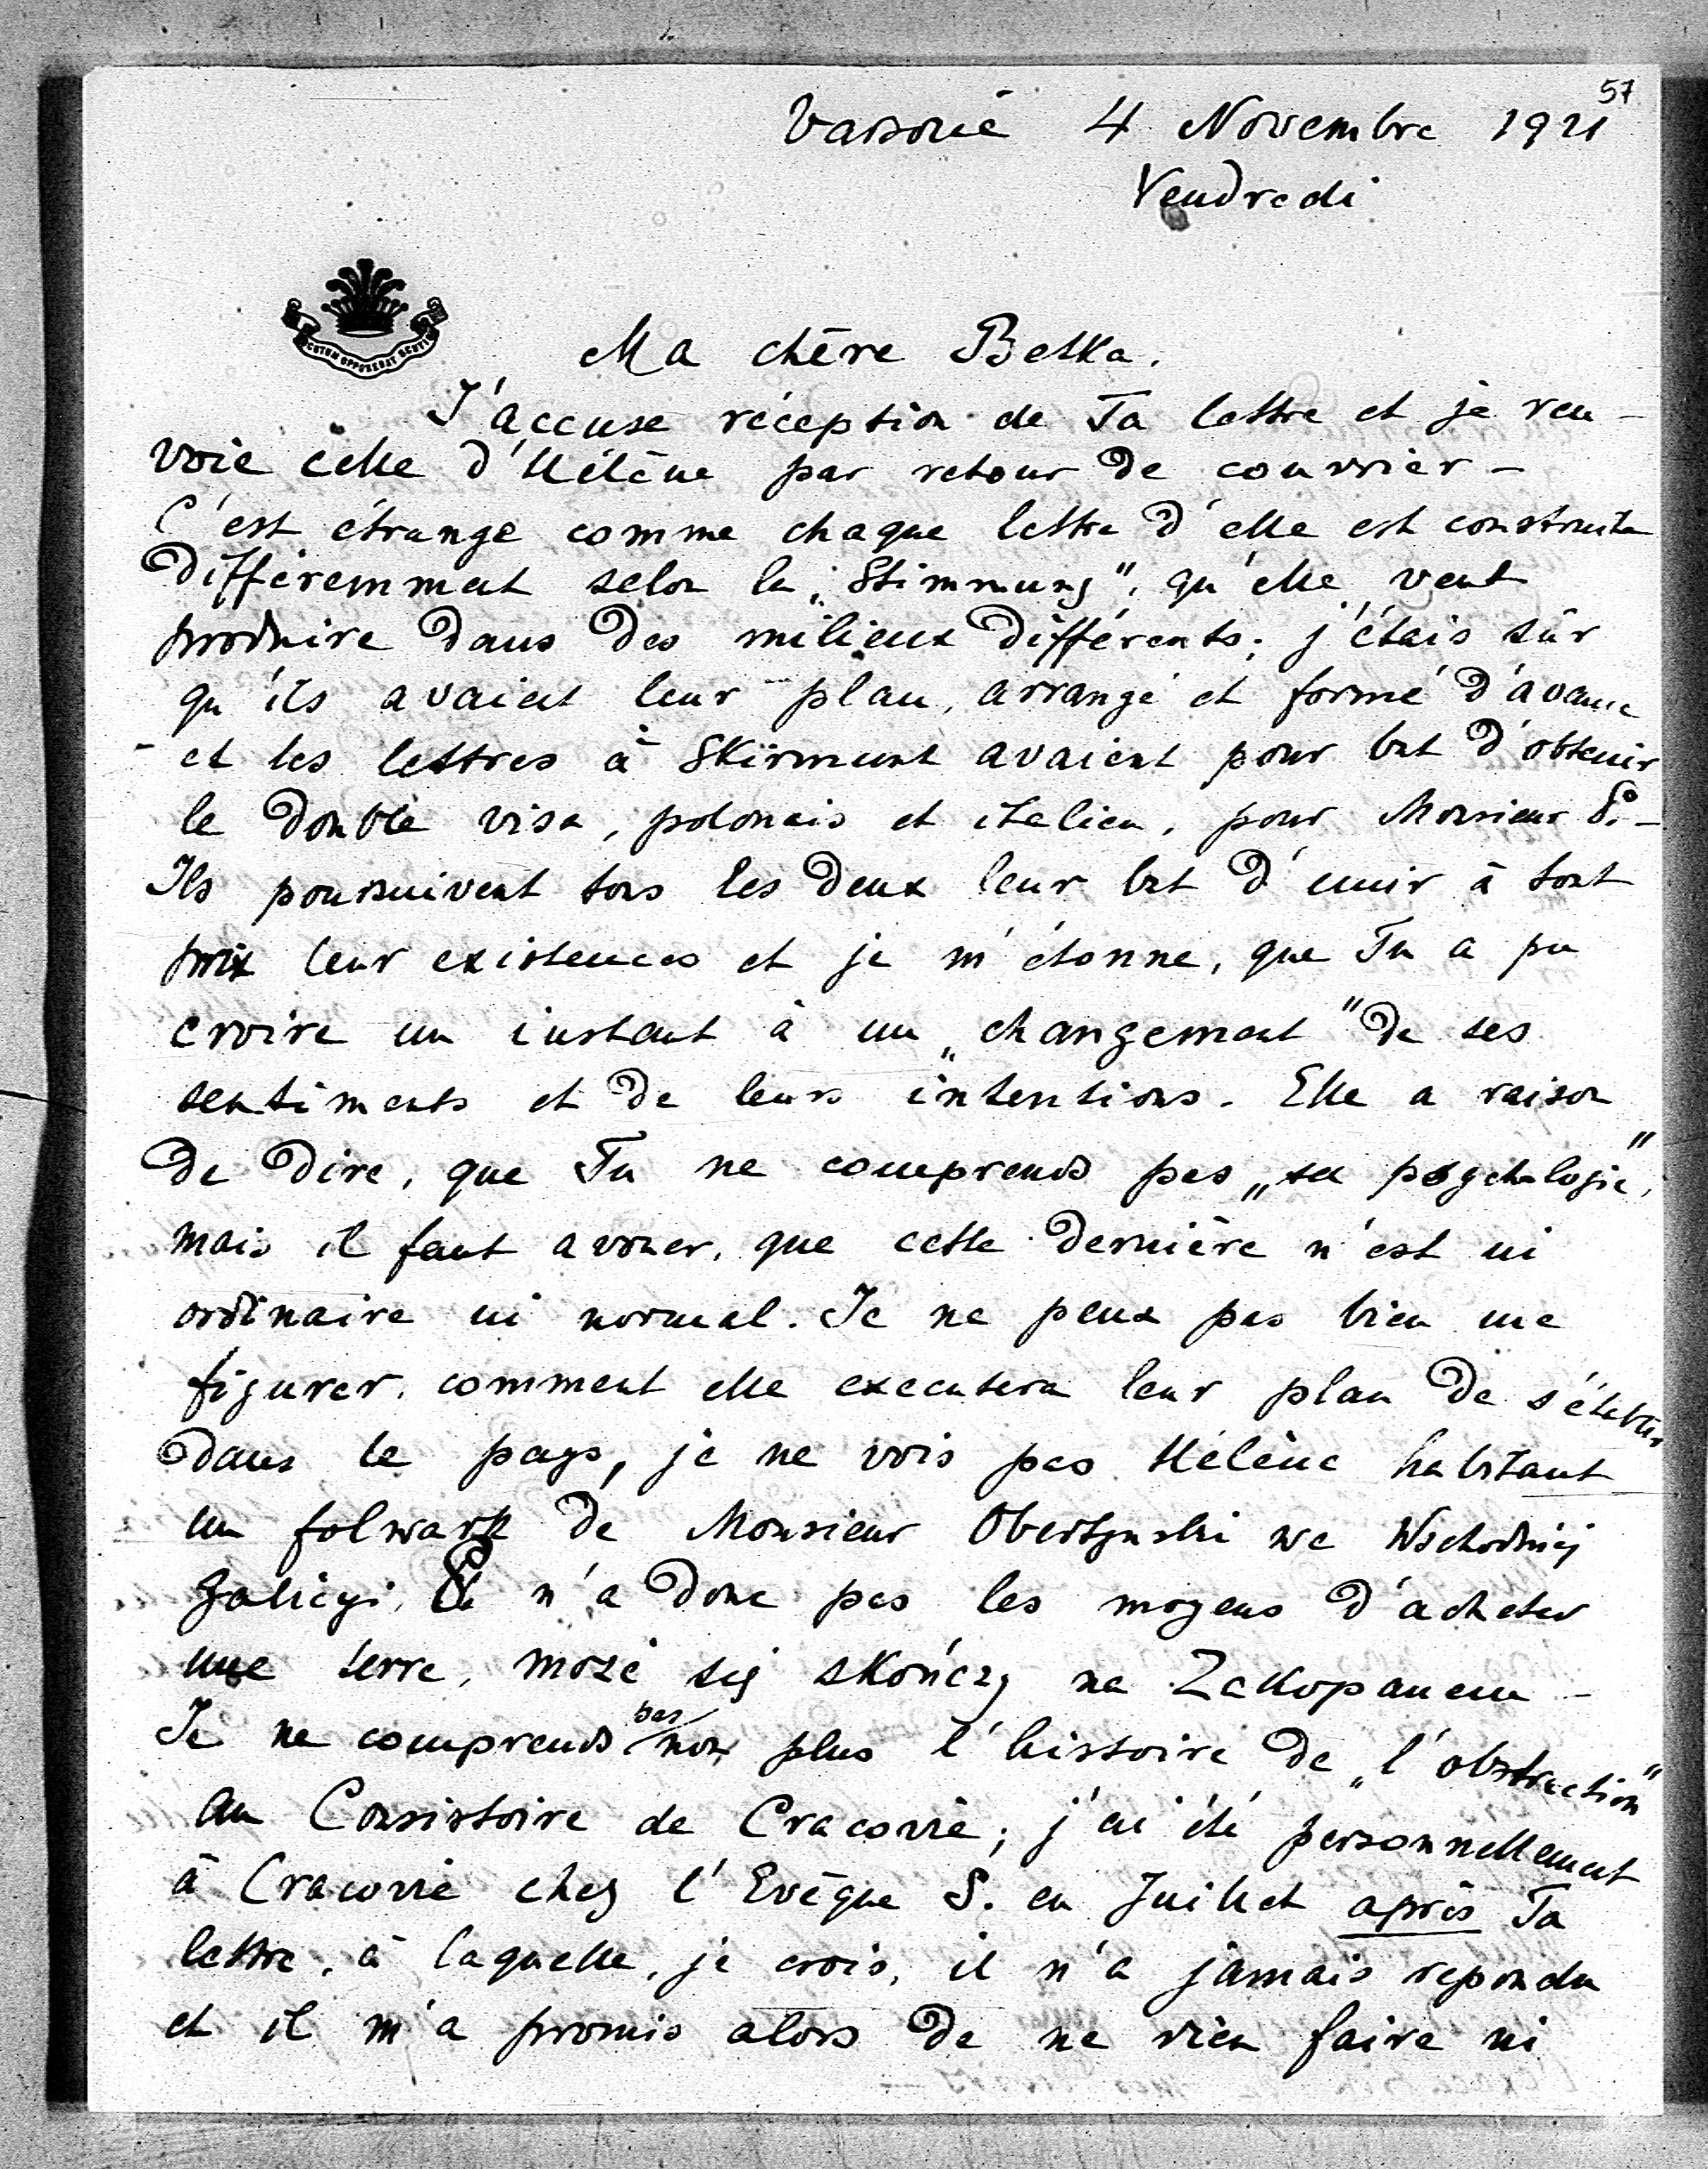 57
Varsovie 4 Novembre 1921
Vendredi
SCUTUM OPPONEBAT SCUTIS
Ma chère Betka.
J'accuse réception de Ta lettre et je ren-
voie celle d'Hélène par retour de courrier -
C'est étrange comme chaque lettre d'elle est construite
différemment selon la „Stimmung", qu'elle veut
produire dans des milieux différents; j'étais sûr
qu'ils avaient leur plan, arrangé et formé d'avance
- et les lettres à Skirmunt avaient pour but d'obtenir
le double visa, polonais et italien, pour Monsieur P. -
Ils poursuivent tous les deux leur but d'unir à tout
prix leur existences et je m'étonne, que Tu a pu
croire un instant à un „changement" de ses
sentiments et de leurs intentions. Elle a raison
de dire, que Tu ne comprends pas „sa psychologie",
mais il faut avouer, que cette dernière n'est ni
ordinaire ni normal. Je ne peux pas bien me
figurer, comment elle executera leur plan de s'établir
dans le pays, je ne vois pas Hélène habitant
un folwark de Monsieur Obertynski we Wschodniej
Galicyi, n'a donc pas les moyens d'acheter
une terre, może się skończy na Zakopanem -
Je ne comprends pas non plus l'histoire de „l'obstruction"
au Consistoire de Cracovie; j'ai été personnellement
à Cracovie chez l'Evêque S. en Juillet après Ta
lettre, à laquelle, je crois, il n'a jamais repondu
et il m'a promis alors de ne rien faire ni